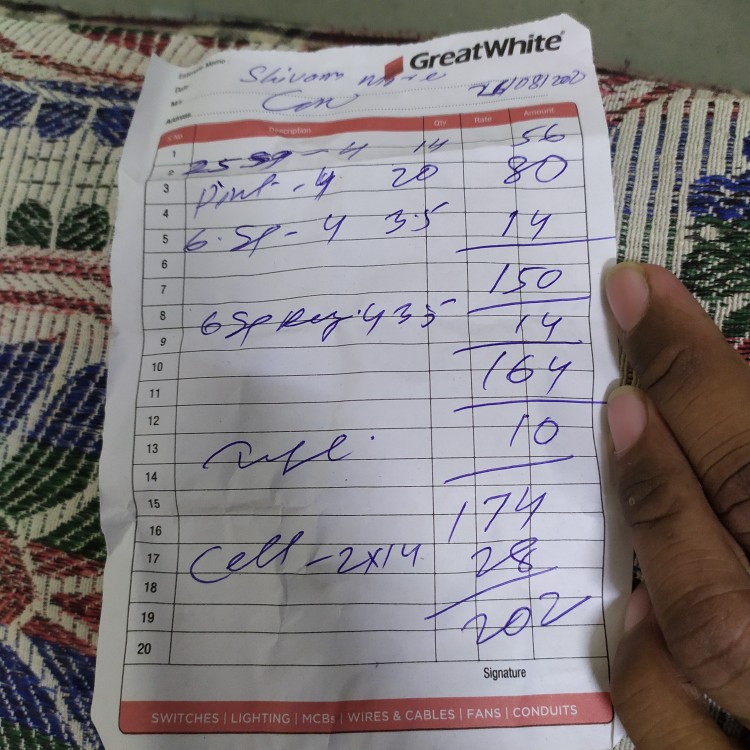 GreatWhite
Shivam
Date
M/s
Address
S.No Description Qty Rate Amount
1 25 Sq - 4 14 56
2
3 Pint - 4 20 80
4
5 6. Sp - 4 3.5 14
6
7 150
8 6 Sp 4 35
9 14
10 164
11
12 10
13
14
15 174
16
17 Cell - 2x14 28
18
19 202
20
Signature
SWITCHES | LIGHTING | MCBs | WIRES & CABLES | FANS | CONDUITS